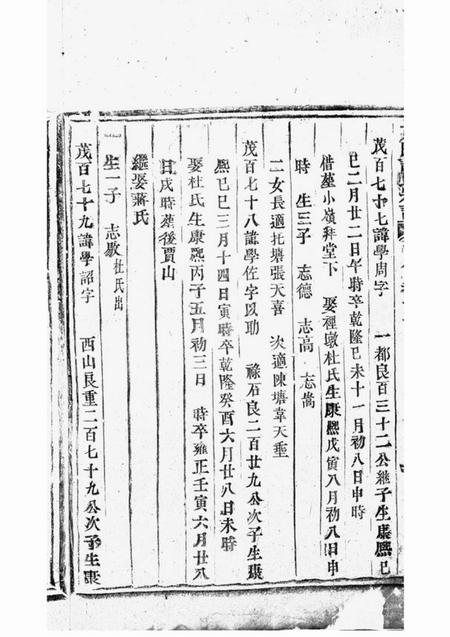 茂百七十七諱學周字 一都良百三十二公繼子生康熙己
巳二月廿二日午時卒乾隆己未十一月初八日申時
借塟小嶺拜堂下 娶裡墩杜氏生康熙戊寅八月初八日申
時 生三子 志德 志高 志嵩
二女長適圫塘張天喜 次適陳塘韋天垂
茂百七十八諱學佐字以助 祿石良二百廿九公次子生康
熙己巳三月十四日寅時卒乾隆癸酉六月廿八日未時
娶杜氏生康熙丙子五月初三日 時卒雍正壬寅六月廿八
日戌時塟後賈山
繼娶蔣氏
生一子 志敭杜氏出
茂百七十九諱學詔字 西山良重二百七十九公次子生康